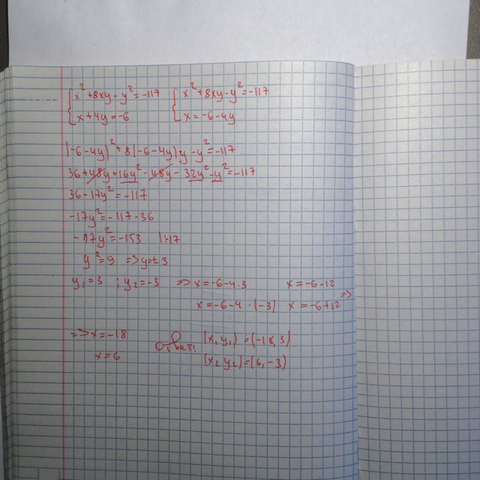 {x²+8xy-y²=-117 {x²+8xy-y²=-117
{x+4y=-6 {x=-6-4y
(-6-4y)²+8(-6-4y)y-y²=-117
36+48y+16y²-48y-32y²-y²=-117
36-17y²=-117
-17y²=-117-36
-17y²=-153 |:-17
y²=9 =>y=±3
y₁=3 ; y₂=-3 =>x=-6-4·3 x=-6-12
x=-6-4·(-3) x=-6+12 =>
=>x=-18
x=6
Ответ: (x₁y₁)=(-18,3)
(x₂y₂)=(6,-3)